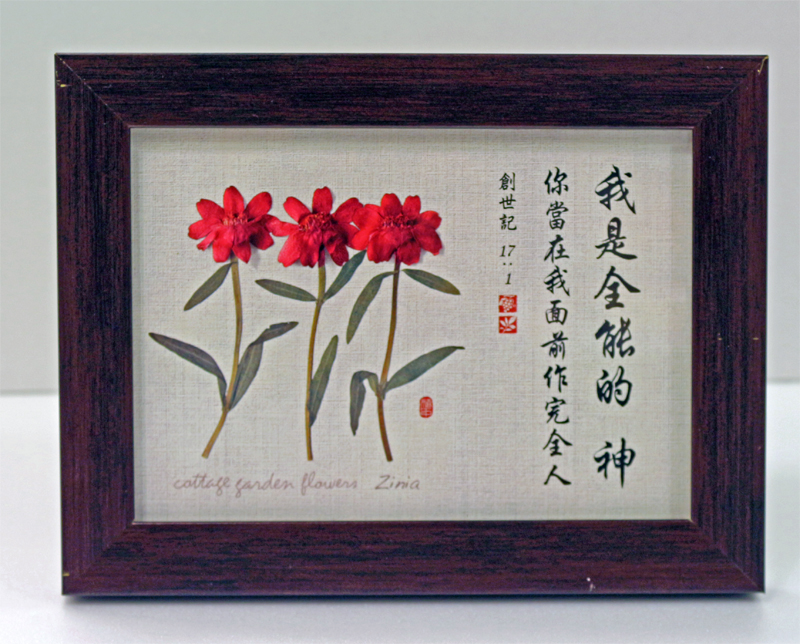 我是全能的 神
你當在我面前作完全人
創世記 17:1
cottage garden flowers Zinia